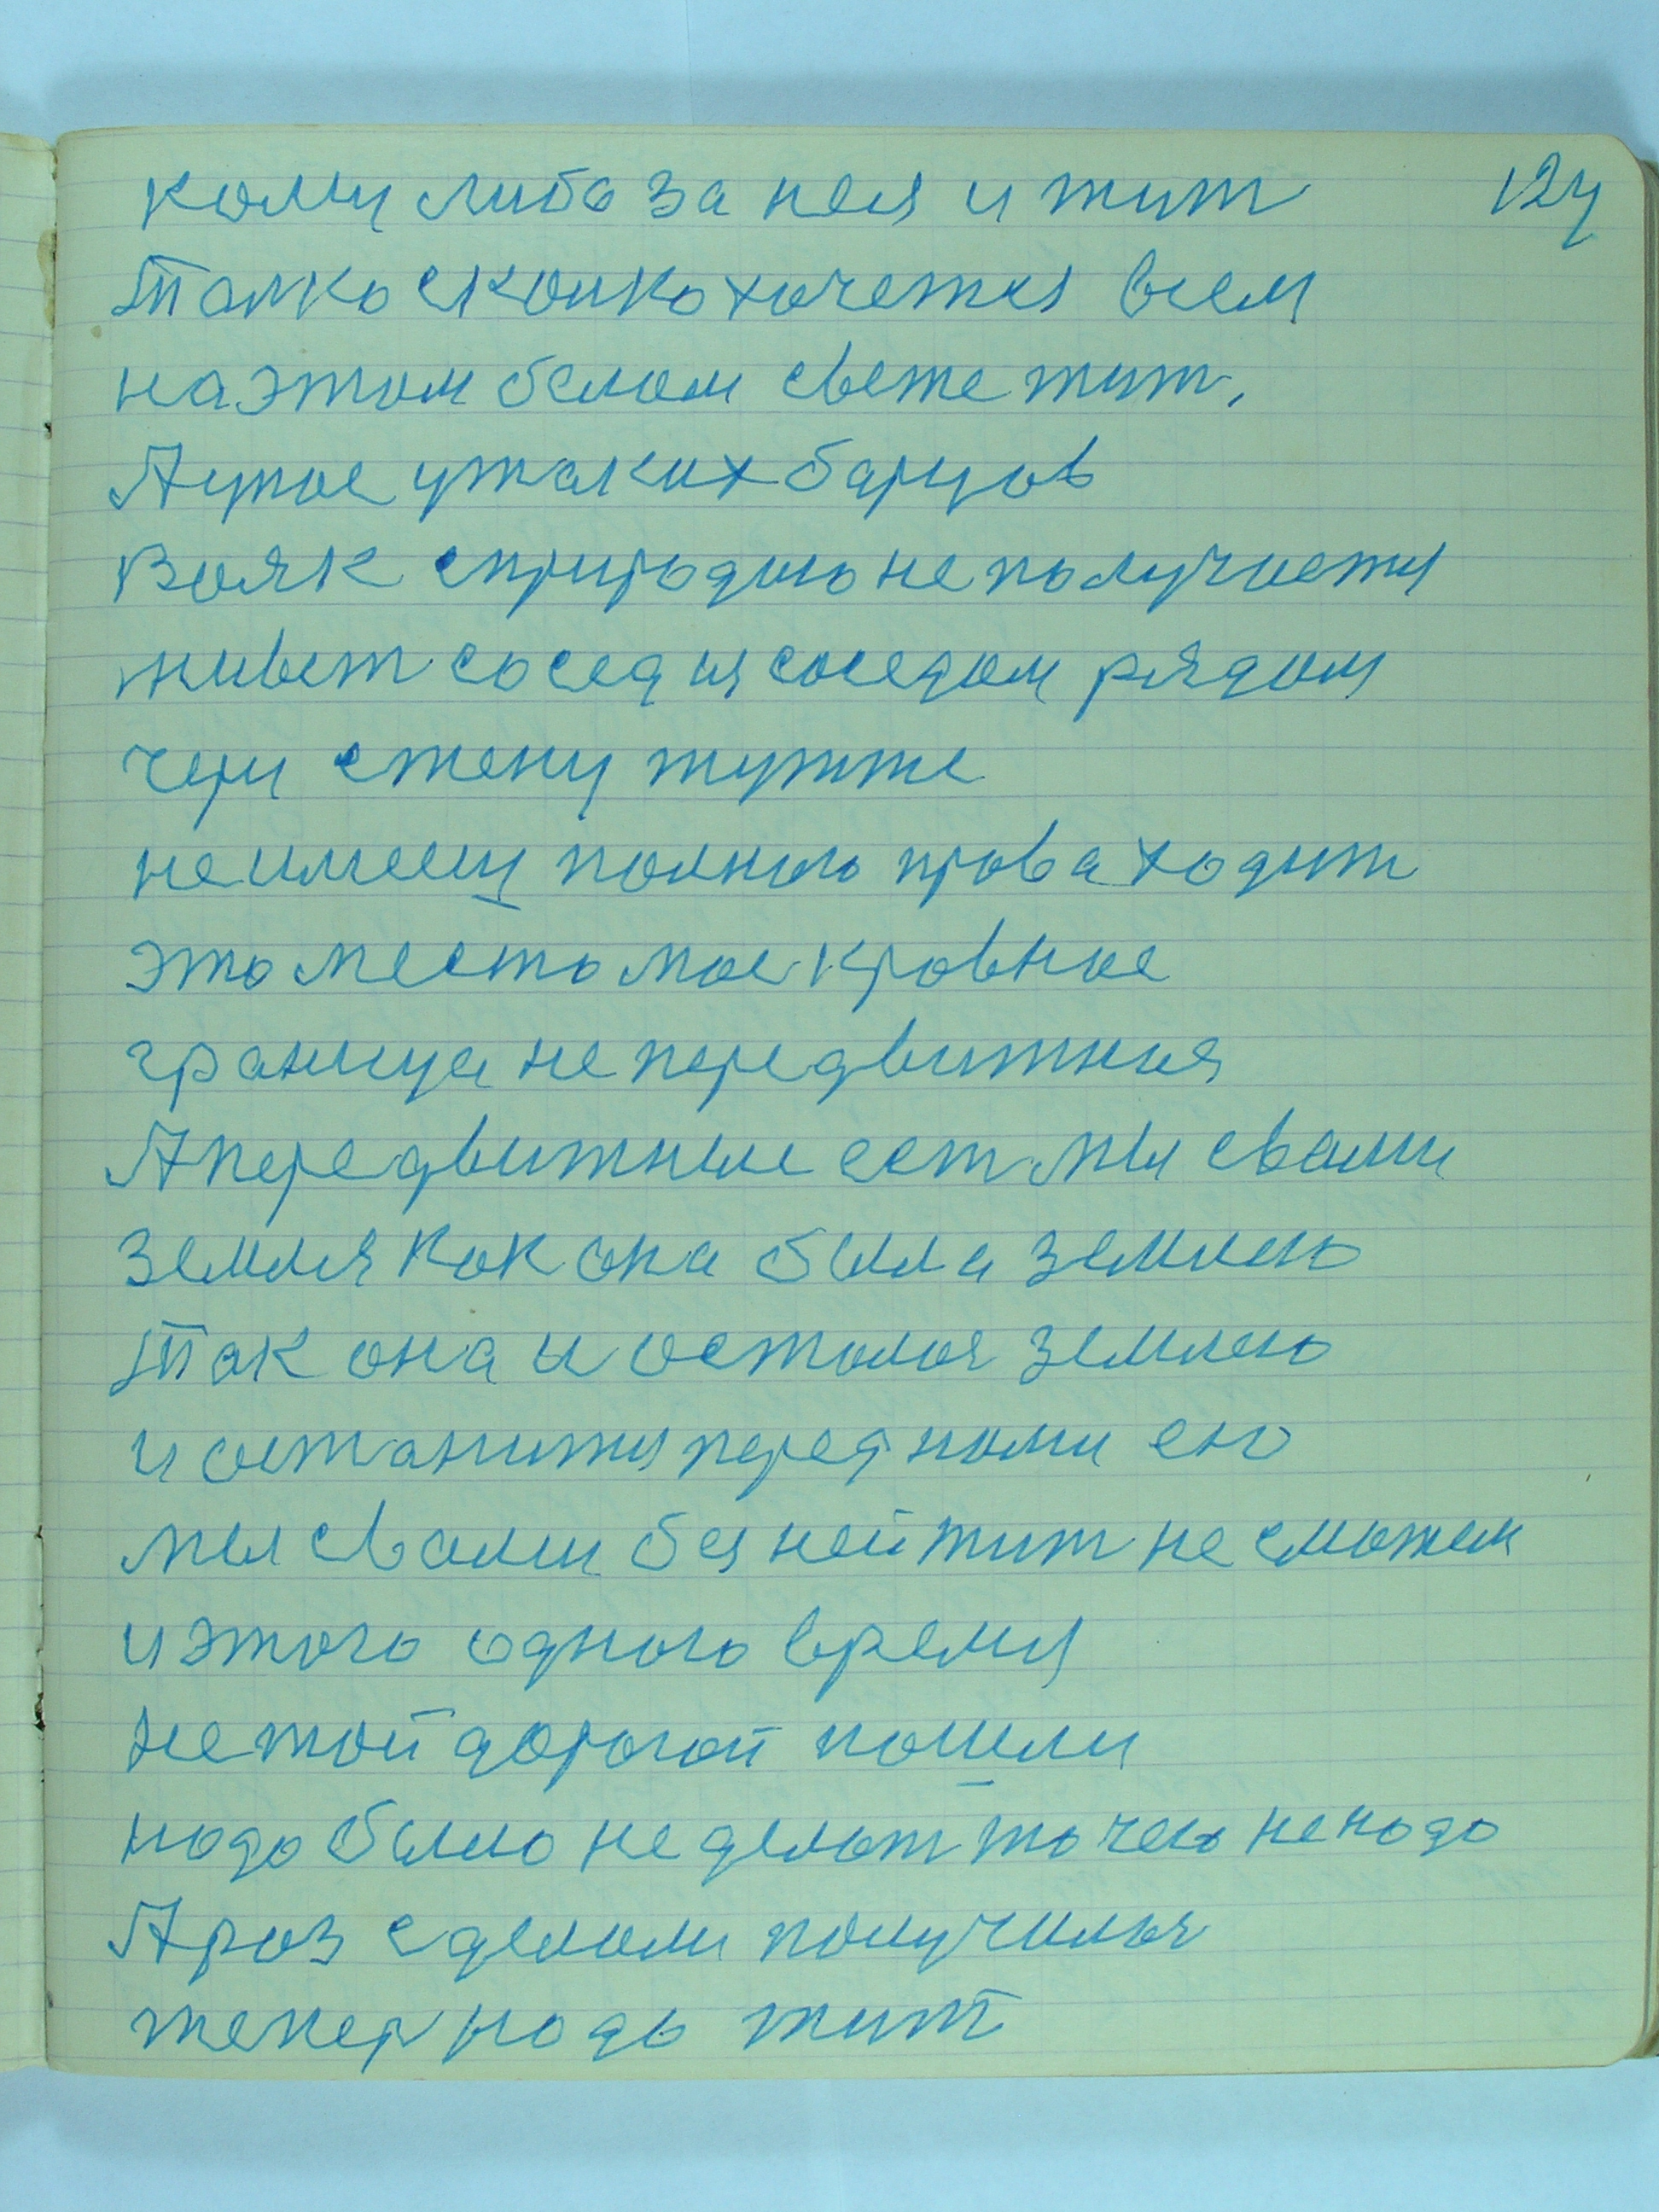 кому либо за нея и жит 124
Толко сколко хочется всем
на этом белом свете жит,
А у нас у таких барцов
Вояк с природою не получается
живет сосед ия соседом рядом
чери стену тутже
не имеещ полного права ходит
это место мое кровное
граница не передвижная
А передвижные ест мы свами
Земля как она была землею
Так она и осталоя землею
и останится перед нами ею
мы свами без ней жит не сможем
и этого одного время
не той дорогой пошели
надо было не делат то чего не надо
А раз сделали получилоя
тепер надо жит